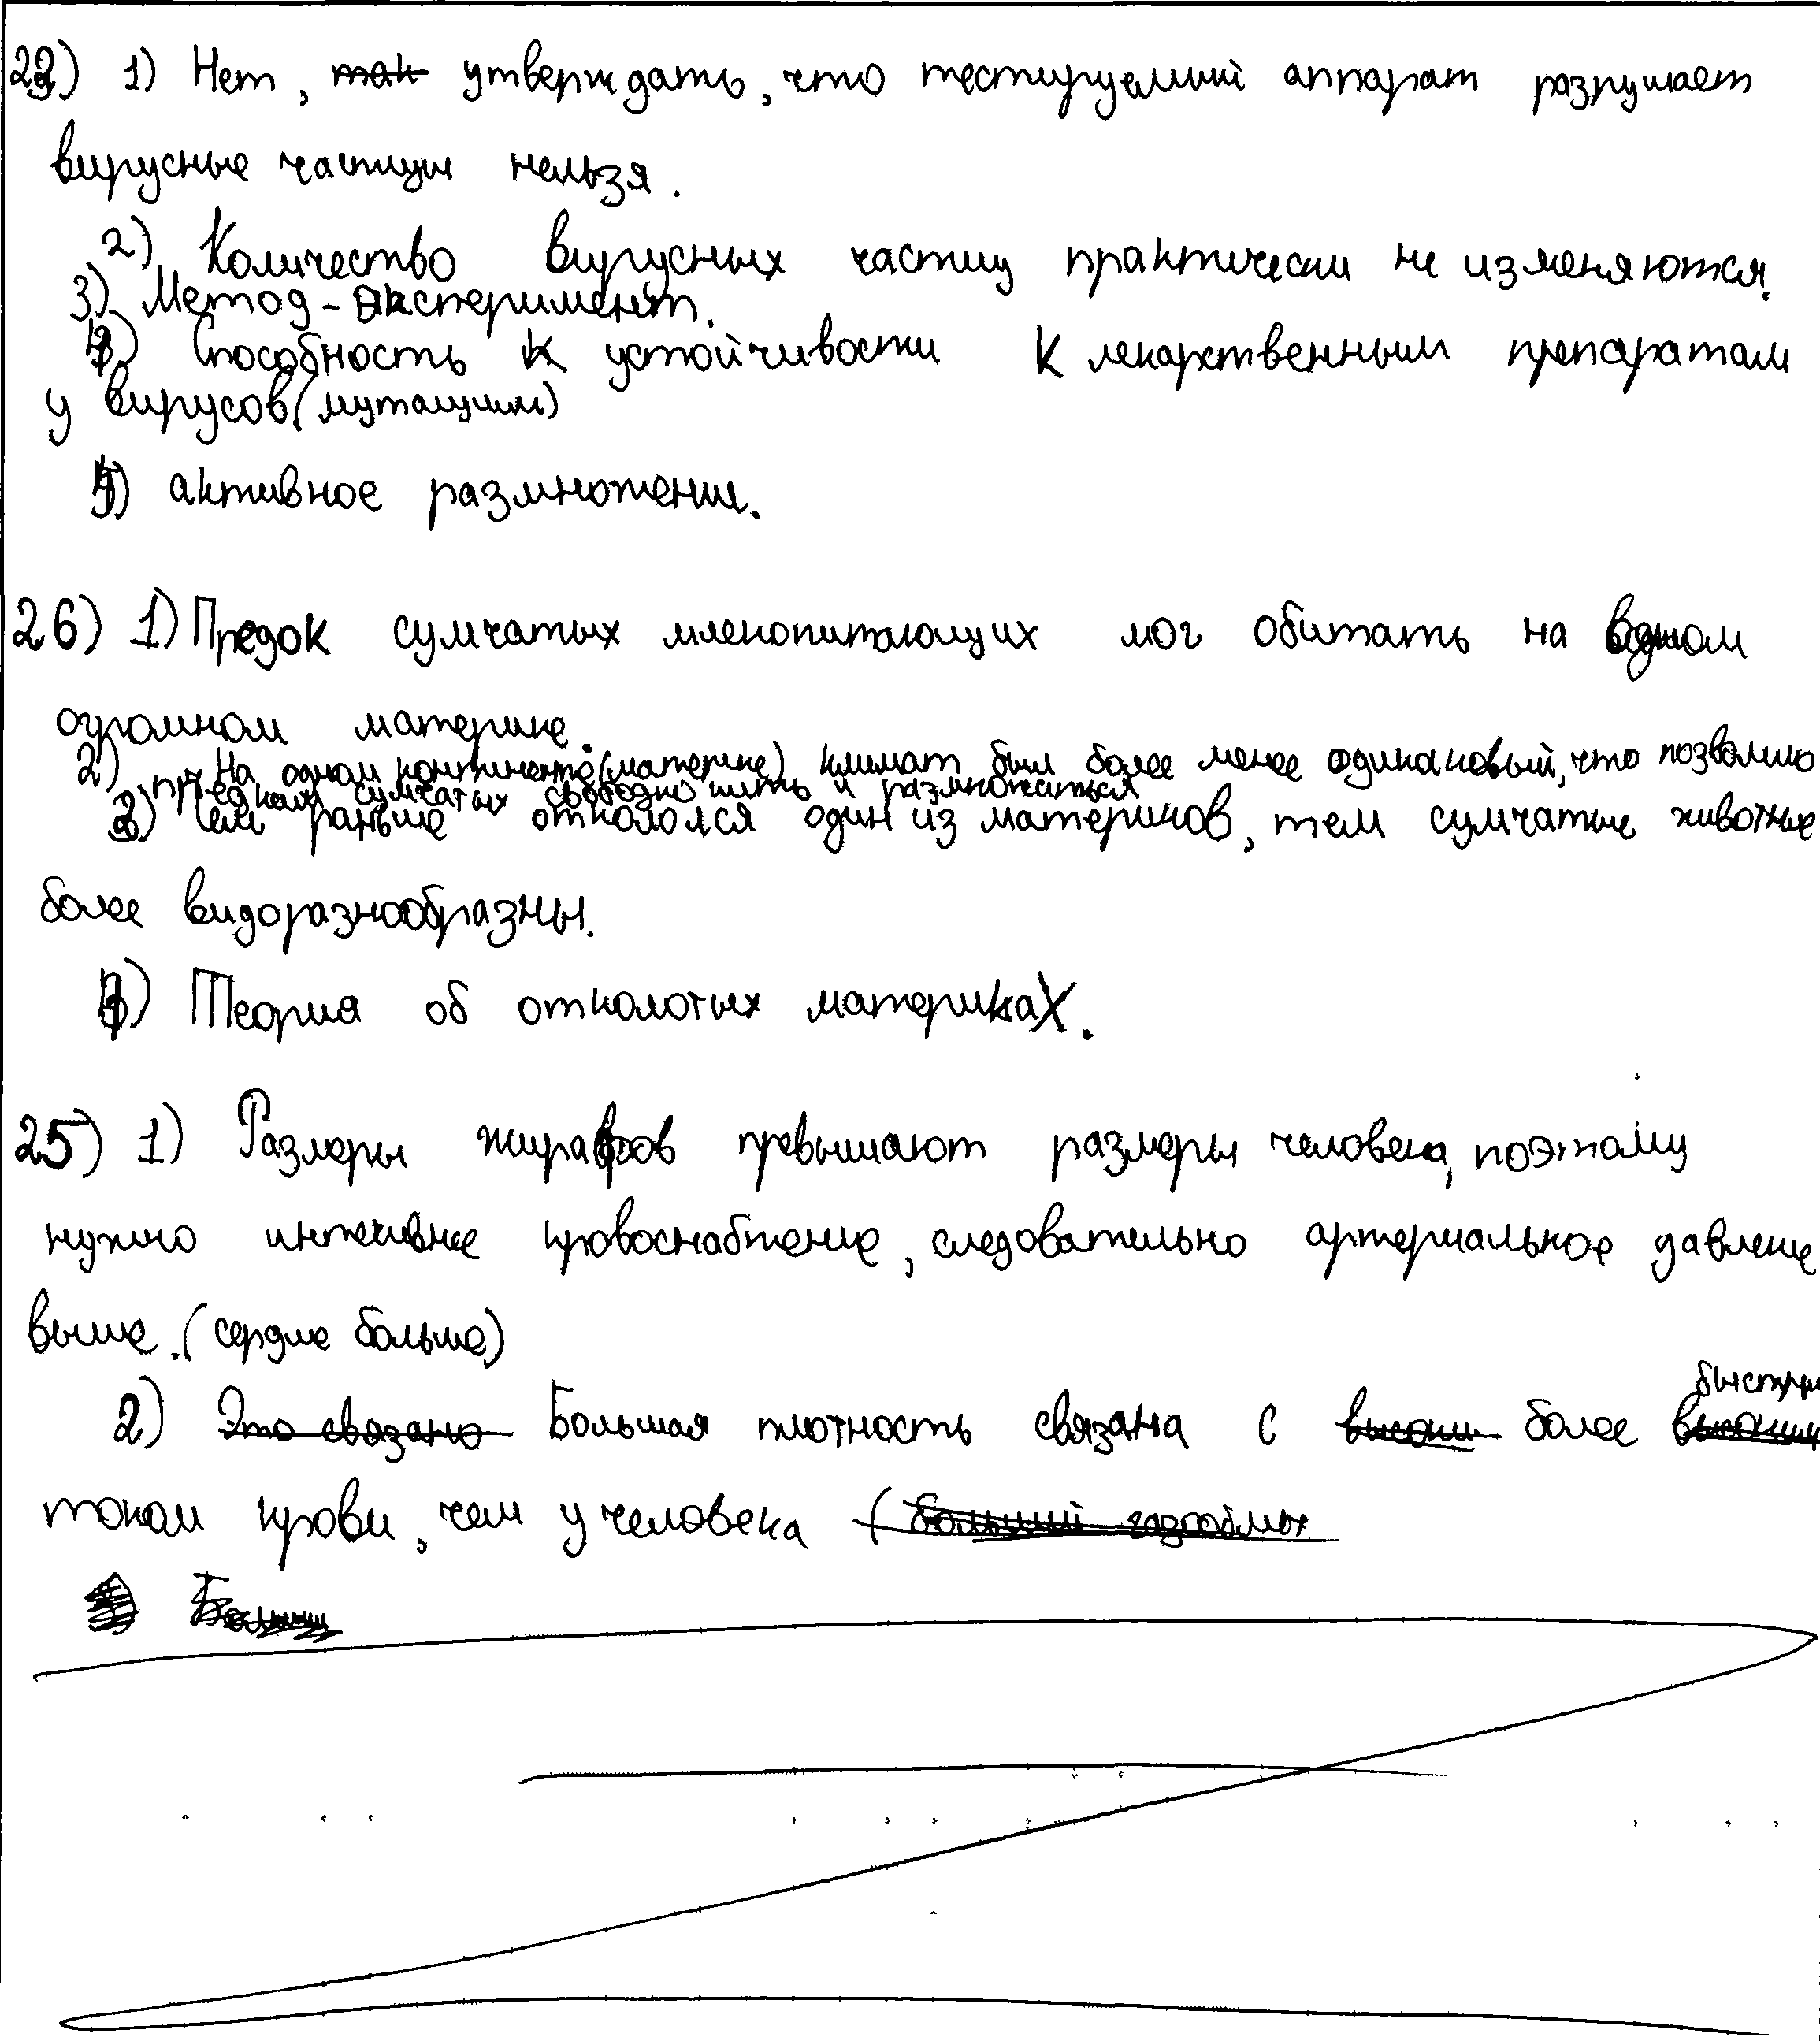 23) 1) Нет, так утверждать, что тестируемый аппарат разрушает
вирусные частицы нельзя.
2) Количество вирусных частиц практически не изменяются.
3) Метод - эксперимент.
4) Способность к устойчивости к лекарственным препаратам
у вирусов (мутации)
5) активное размножение.
26) 1) Предок сумчатых млекопитающих мог обитать на одном
огромном материке.
2) На одном континенте (материке) климат был более менее одинаковый, что позволило
предкам сумчатых свободно жить и размножаться
3) Чем раньше откололся один из материков, тем сумчатые животные
более видоразнообразны.
4) Теория об отколотых материках.
25) 1) Размеры жирафов превышают размеры человека, поэтому
нужно интенивнее кровоснабжение, следовательно артериальное давление
выше. (сердце больше)
быстрым
2) Это связано Большая плотность связана с более
током крови, чем у человека (больший газообмен